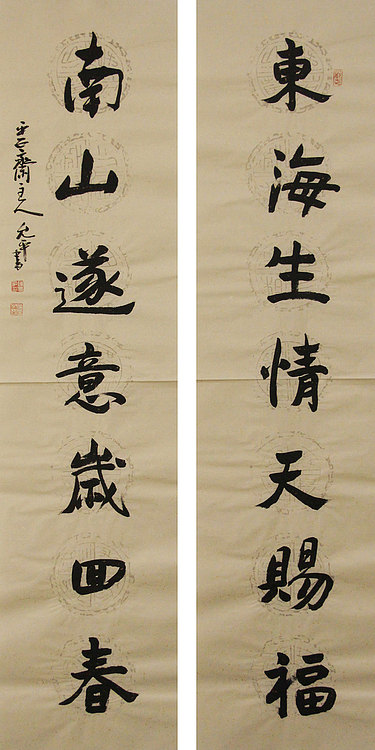 東海生情天賜福
南山遂意歲回春
平正齋主人
書